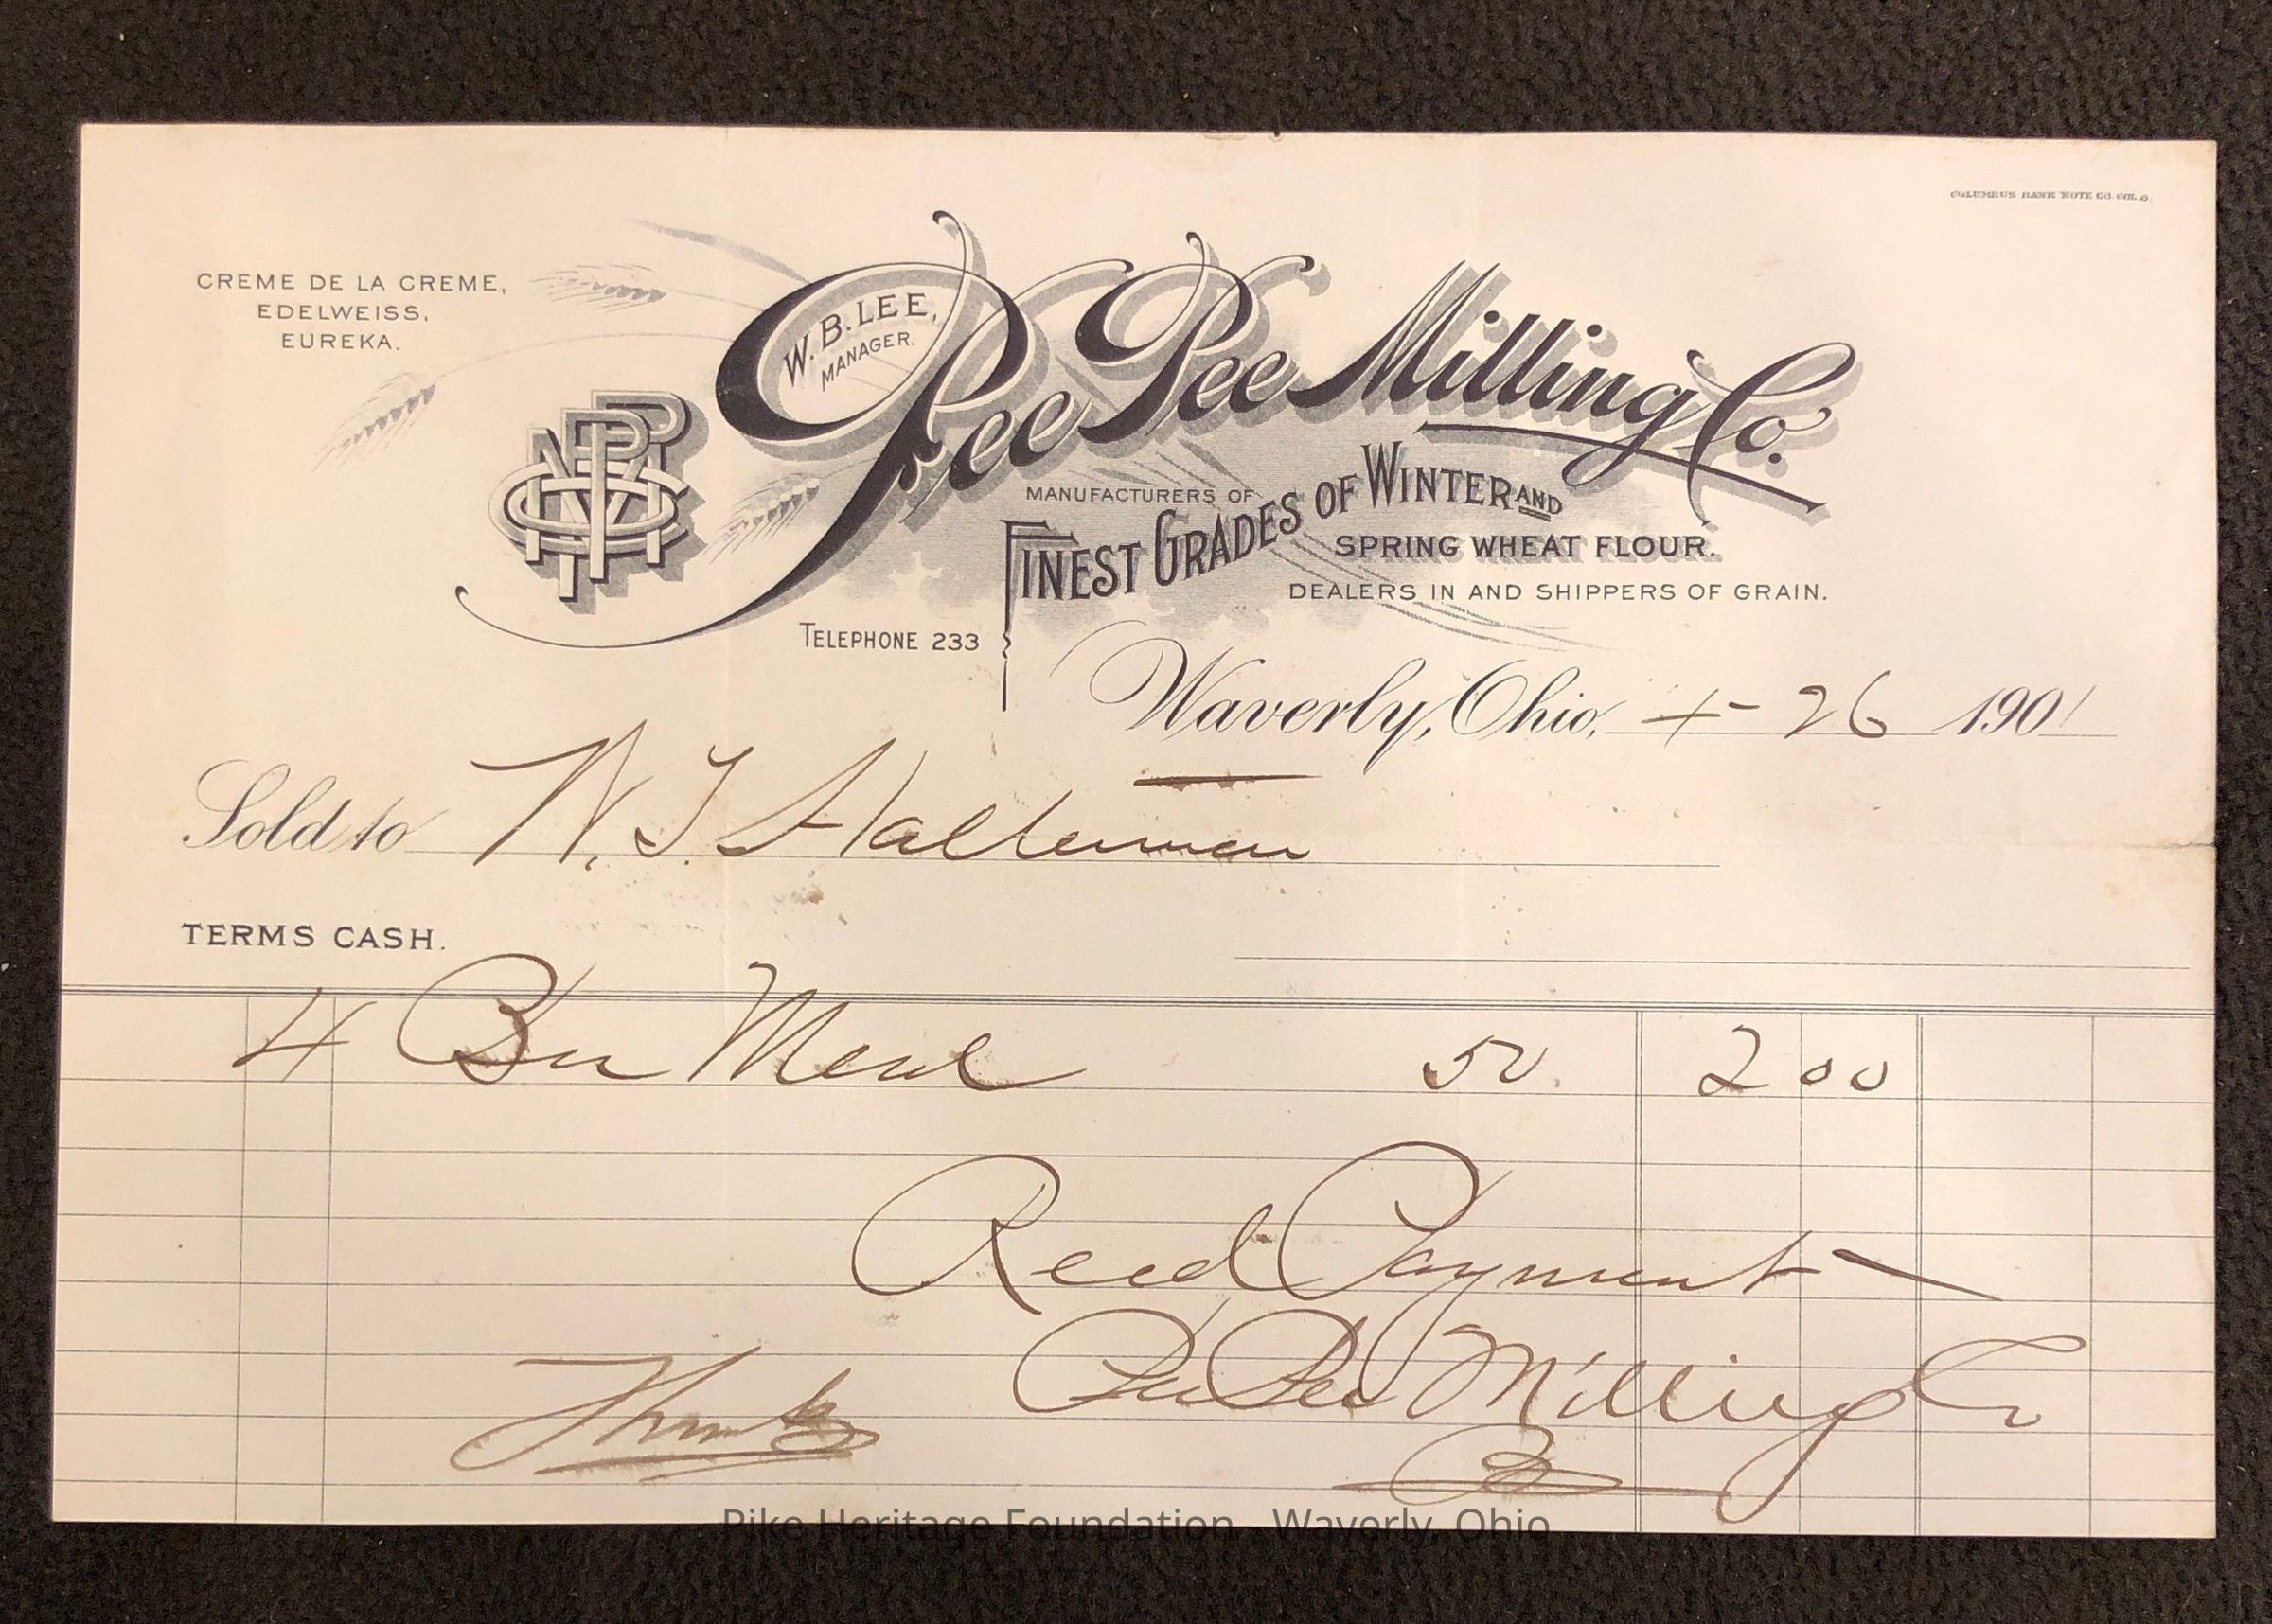 COLUMBUS BANK NOTE CO. COL. O.
CREME DE LA CREME,
EDELWEISS,
EUREKA.
W. B. LEE,
MANAGER.
Pee Pee Milling Co.
MANUFACTURERS OF
FINEST GRADES OF WINTER AND
SPRING WHEAT FLOUR.
DEALERS IN AND SHIPPERS OF GRAIN.
TELEPHONE 233
Waverly, Ohio, 4-26 1901
Sold to W. T. Halterman
TERMS CASH.
4 Bu Meal 50 2 00
Recd Payment
Pee Pee Milling Co
B
Thanks
Pike Heritage Foundation - Waverly, Ohio